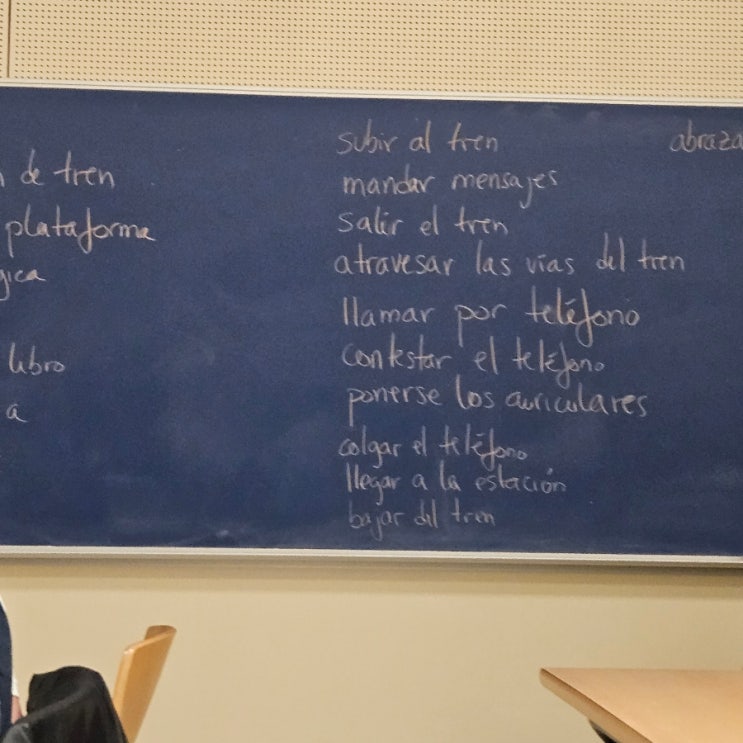 de tren
plataforma
gica
libro
a
subir al tren
mandar mensajes
salir el tren
atravesar las vías del tren
llamar por teléfono
contestar el teléfono
ponerse los auriculares
colgar el teléfono
llegar a la estación
bajar del tren
abraza